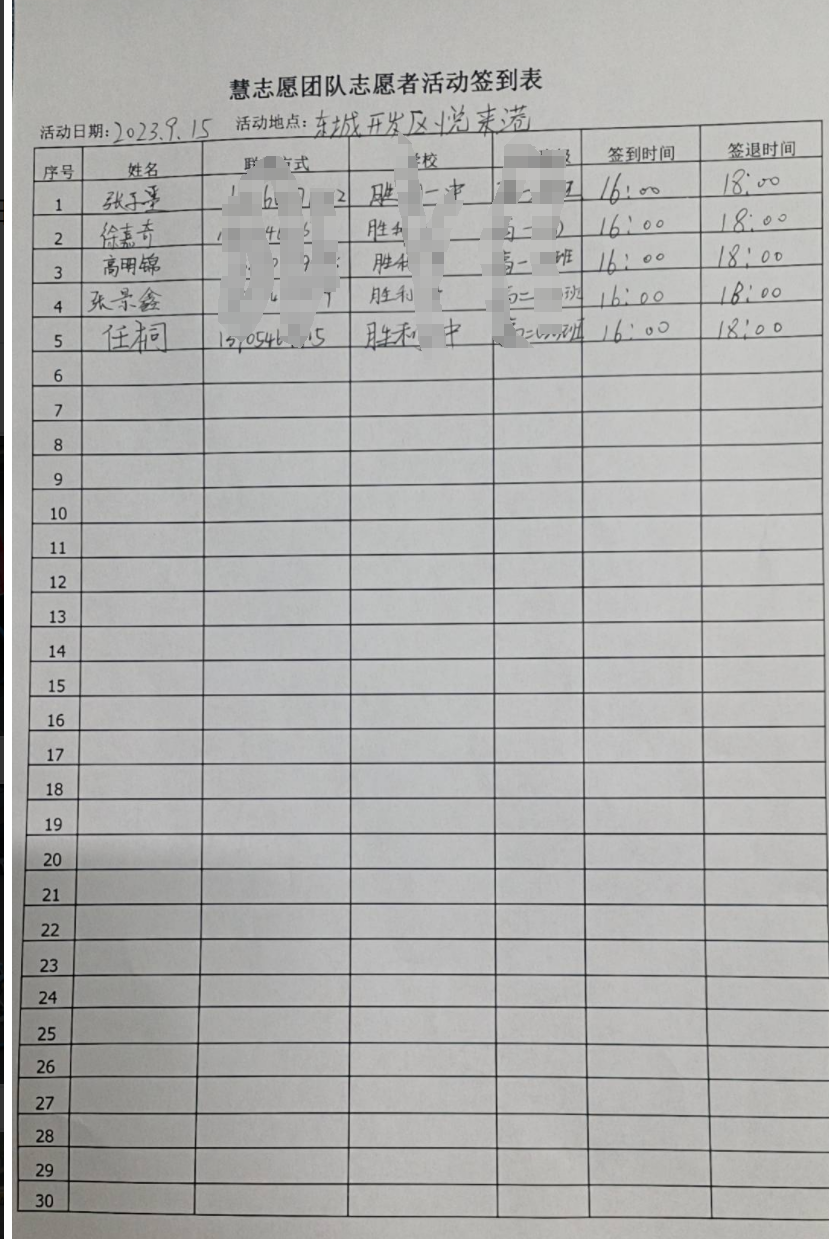 慧志愿团队志愿者活动签到表
活动日期:2023.9.15 活动地点:东城开发区悦来港
序号 姓名 签到时间 签退时间
1 16:00 18:00
2 徐嘉奇 胜利 高一 16:00 18:00
3 高明锦 胜利 高一 班 16:00 18:00
4 张景鑫 胜利 高二 班 16:00 18:00
5 任桐 胜利 中 高二 班 16:00 18:00
6
7
8
9
10
11
12
13
14
15
16
17
18
19
20
21
22
23
24
25
26
27
28
29
30